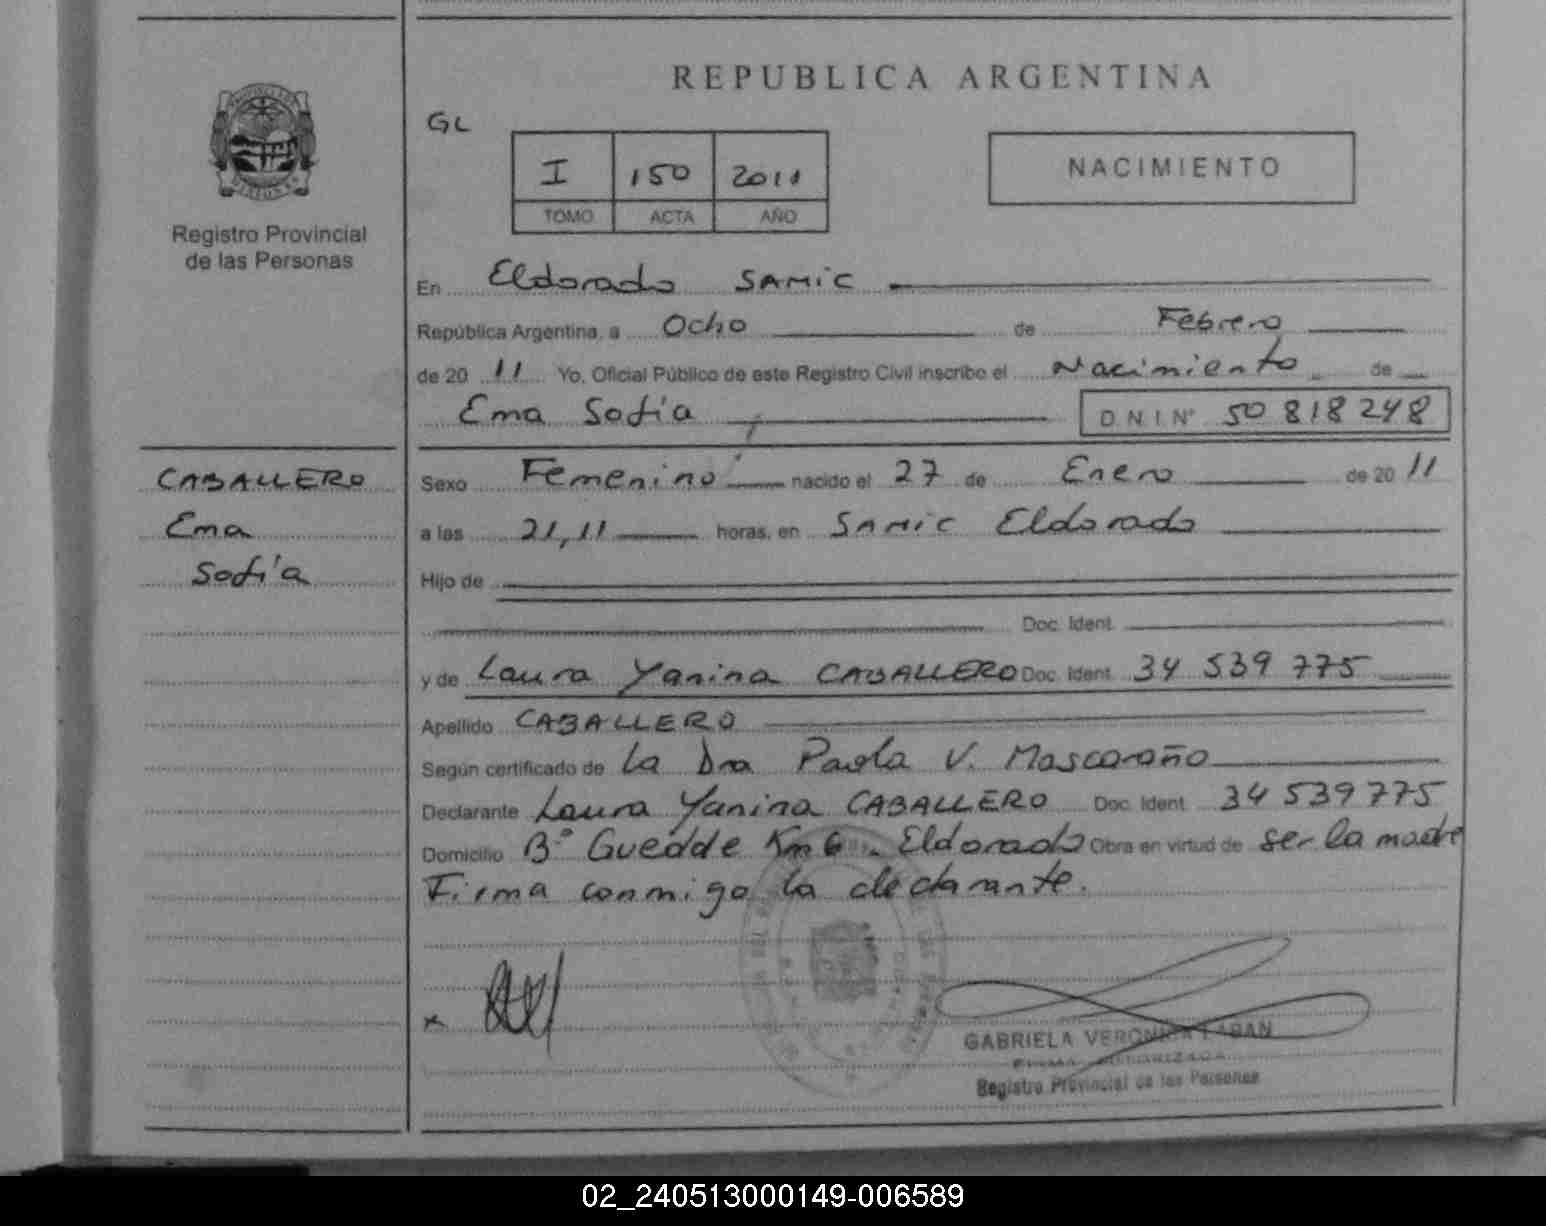 REPUBLICA ARGENTINA
GL
I 150 2011
TOMO ACTA AÑO
NACIMIENTO
Registro Provincial
de las Personas
En Eldorado SAMIC
República Argentina, a Ocho de Febrero
de 20 11 Yo, Oficial Público de este Registro Civil inscribo el Nacimiento de
Ema Sofía D.N.I. Nº 50 818 248
CABALLERO
Ema
Sofía
Sexo Femenino nacido el 27 de Enero de 20 11
a las 21,11 horas, en SAMIC Eldorado
Hijo de
Doc. Ident.
y de Laura Yanina CABALLERO Doc. Ident. 34 539 775
Apellido CABALLERO
Según certificado de La Dra Paola V. Mascaraño
Declarante Laura Yanina CABALLERO Doc. Ident. 34 539 775
Domicilio Bº Guedde Km 6 Eldorado Obra en virtud de ser la madre
Firma conmigo la declarante.
x
GABRIELA VERONICA
FIRMA AUTORIZADA
Registro Provincial de las Personas
02_240513000149-006589